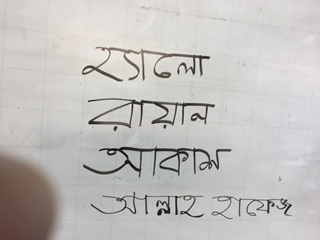 হ্যালো
রায়ান
আকাশ
আল্লাহ হাফেজ